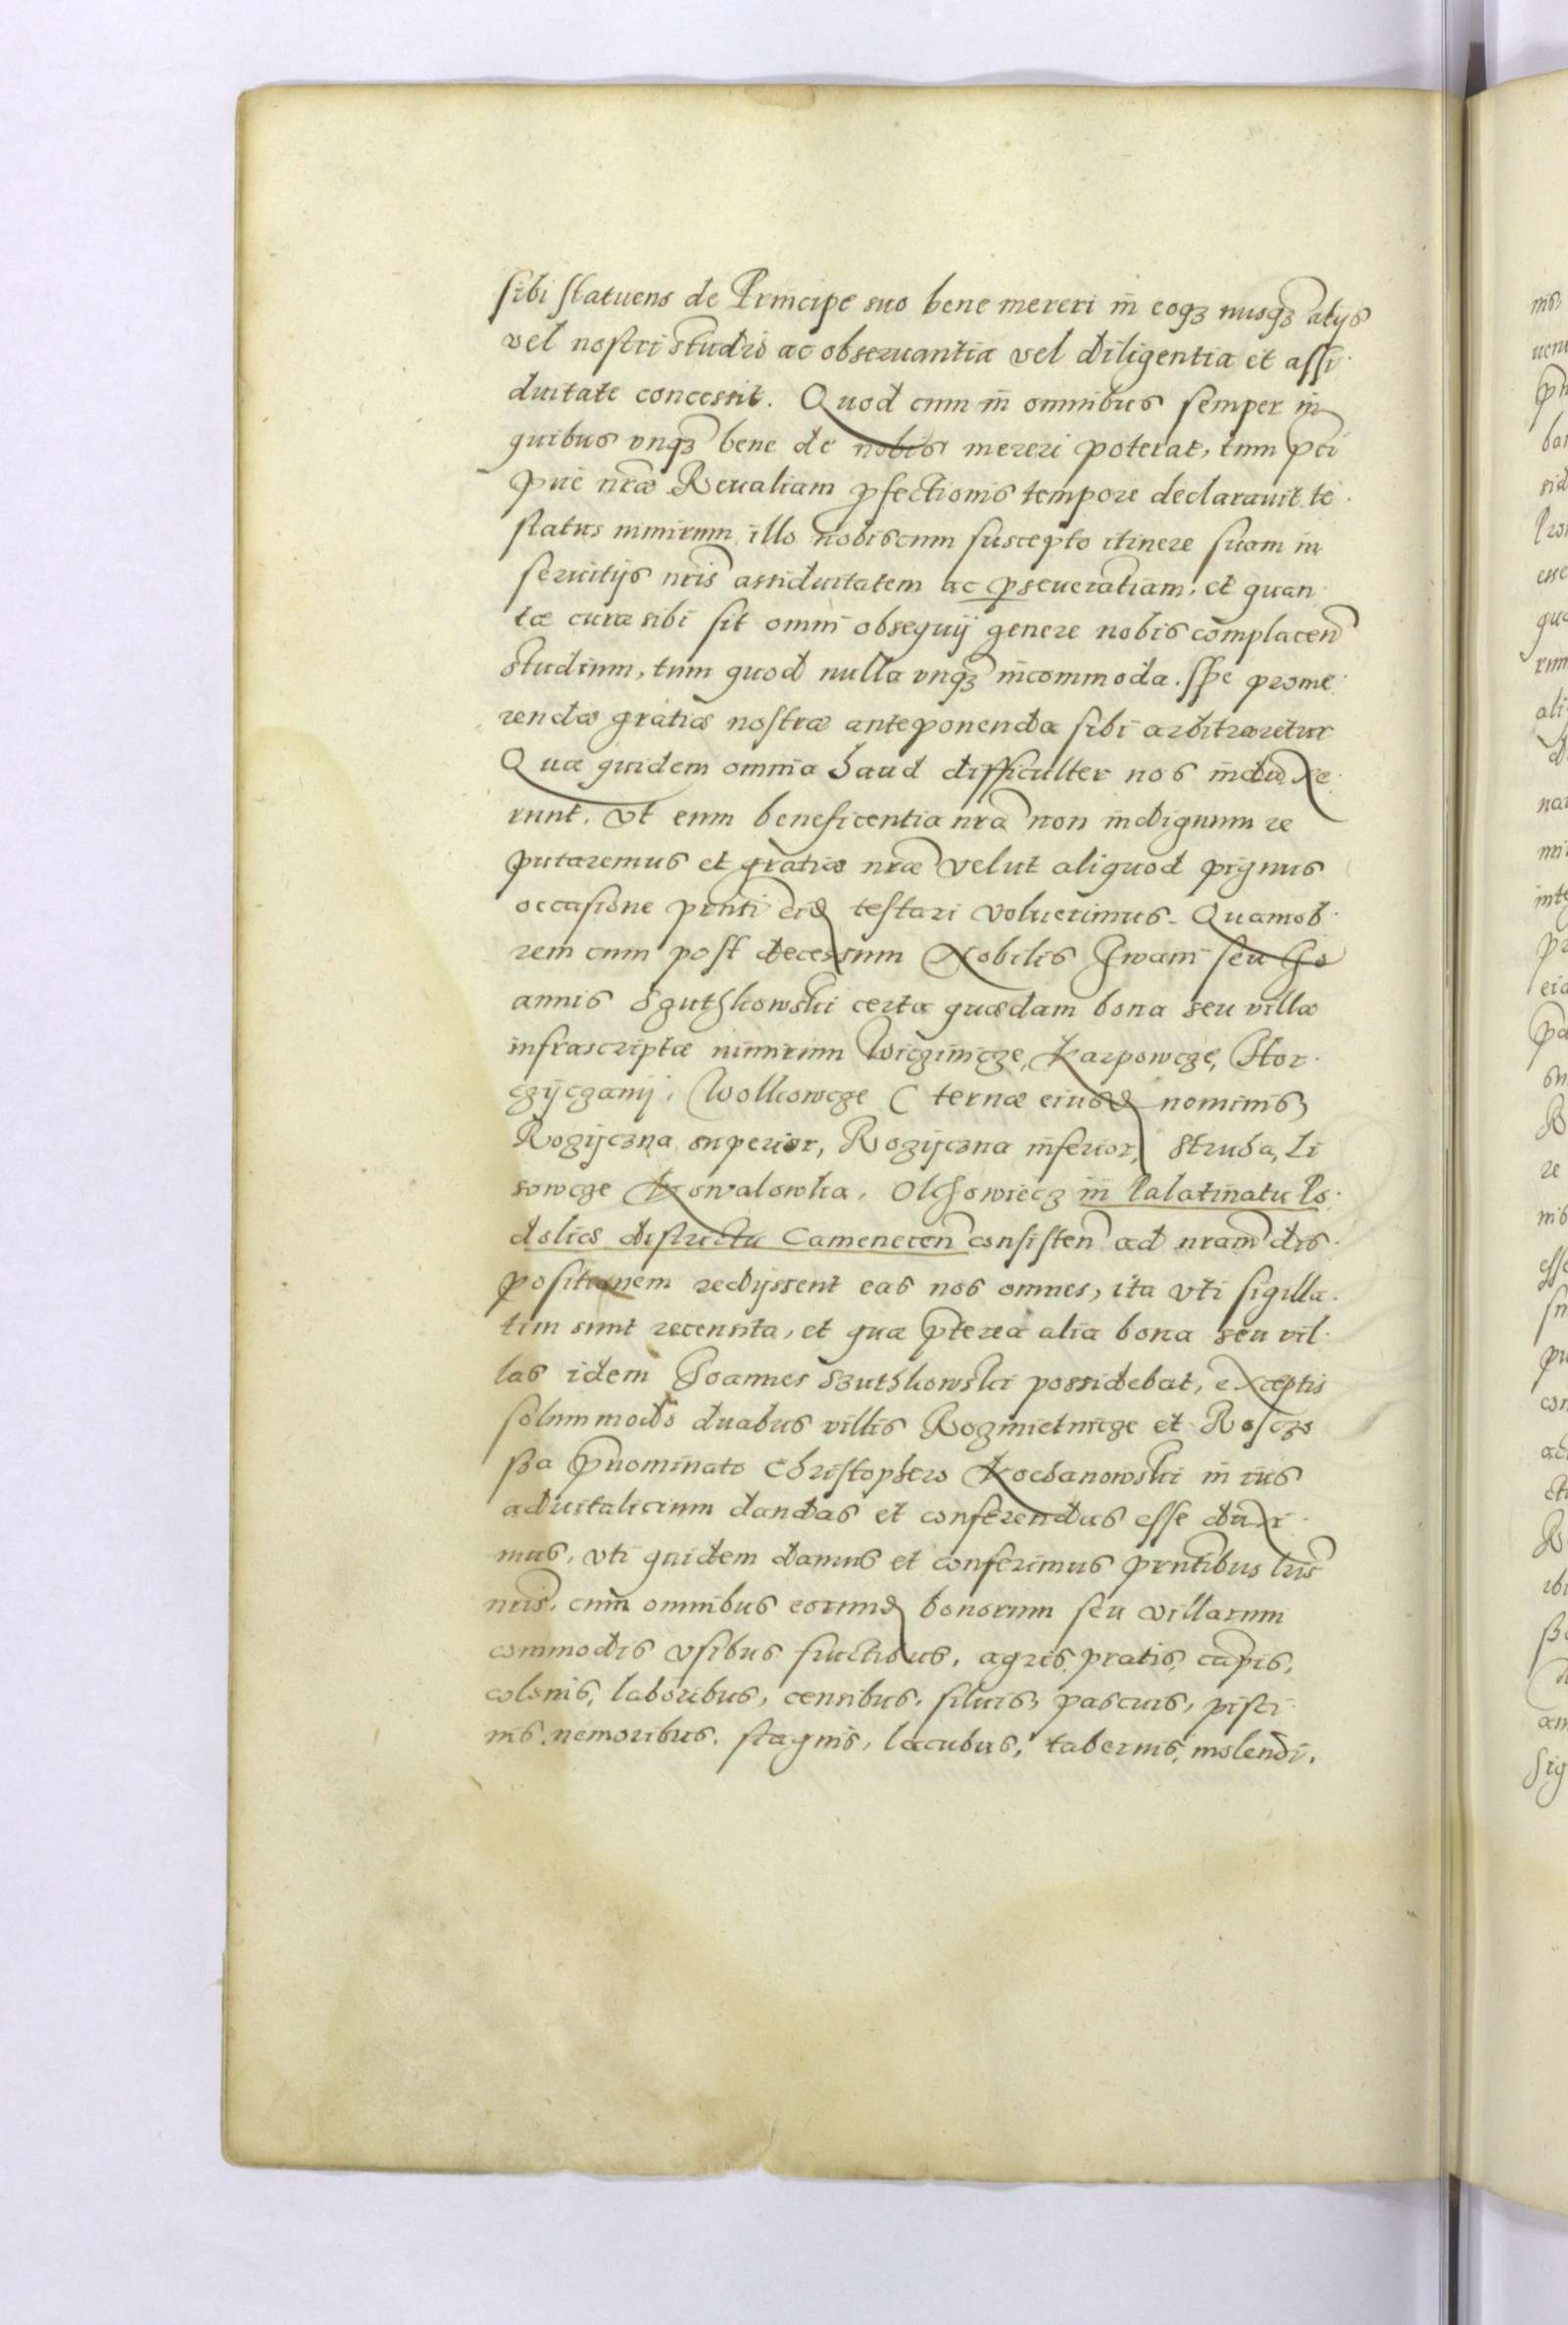 sibi statuens de Principe suo bene mereri in eoqʒ nusqʒ alijs
vel nostri studio ac obseruantia vel diligentia et assi
duitate concessit. Quod cum in omnibus semper in
quibus vnqʒ bene de nobis mereri poterat, tum pci
pue nrae Reualiam pfectionis tempore declarauit te
status nimirum illo nobiscum suscepto itinere suam in
seruitijs nris assiduitatem ac pseueratiam, et quan
tae curae sibi sit omni obsequij genere nobis complacen
studium, tum quod nulla vnqʒ incommoda. Spe prome
rendae gratiae nostrae anteponenda sibi arbitraretur
Quae quidem omnia haud difficulter nos induxe
runt. Vt eum beneficentia nra non indignum re
putaremus et gratiae nrae velut aliquod pignus
occasione pnti eid testari volverimus. Quamob
rem cum post decessum Nobilis Iwani seu Jo
annis Szuthkowski certa quaedam bona seu villae
infrascriptae nimirum Wiczincze, Karpowcze, Hor
czyczanij, Wolkowcze (ternae eiusd nominis)
Rozijczna superior, Rozijczna inferior, Struha, Li
sowcze Kowalowka, Olchowiecz in Palatinatu Po
doliae districtu Camenecen consisten ad nram dis
positionem redijssent eas nos omnes, ita vti sigilla
tim sunt recensita, et quae pterea alia bona seu vil
las idem Joannes Szuthkowski possidebat, exceptis
solummodo duabus villis Rogmietnicze et
pnominato Christophero Kochanowski in ius
aduitalicium dandas et conferendas esse duxi
mus, vti quidem damus et conferimus pntibus lris
nris, cum omnibus eorund bonorum seu villarum
commodis vsibus fructibus, agris, pratis, capis,
colonis, laboribus, censibus, siluis, pascuis, pisci
nis, nemoribus, stagnis, lacubus, tabernis, molendi,